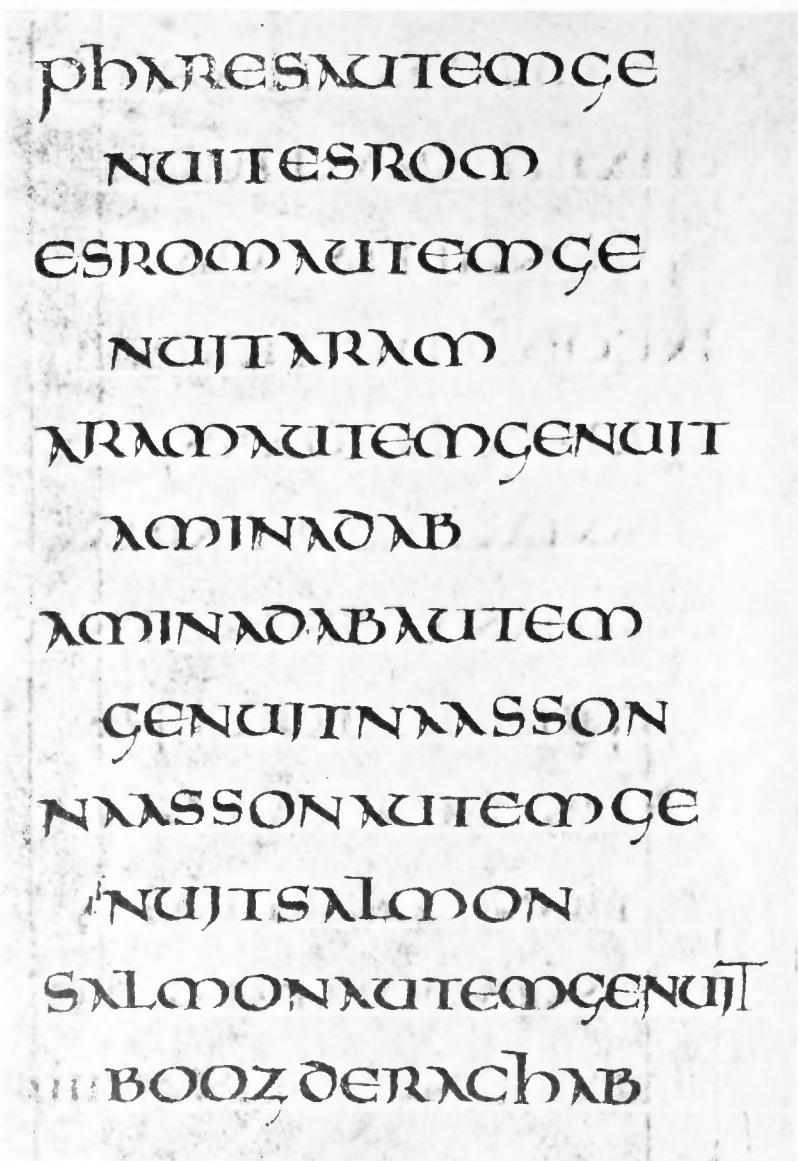 PhARESAUTEMGE
NUITESROM
ESROMAUTEMGE
NUITARAM
ARAMAUTEMGENUIT
AMINADAB
AMINADABAUTEM
GENUITNAASSON
NAASSONAUTEMGE
NUITSALMON
SALMONAUTEMGENUIT
BOOZDERAChAB